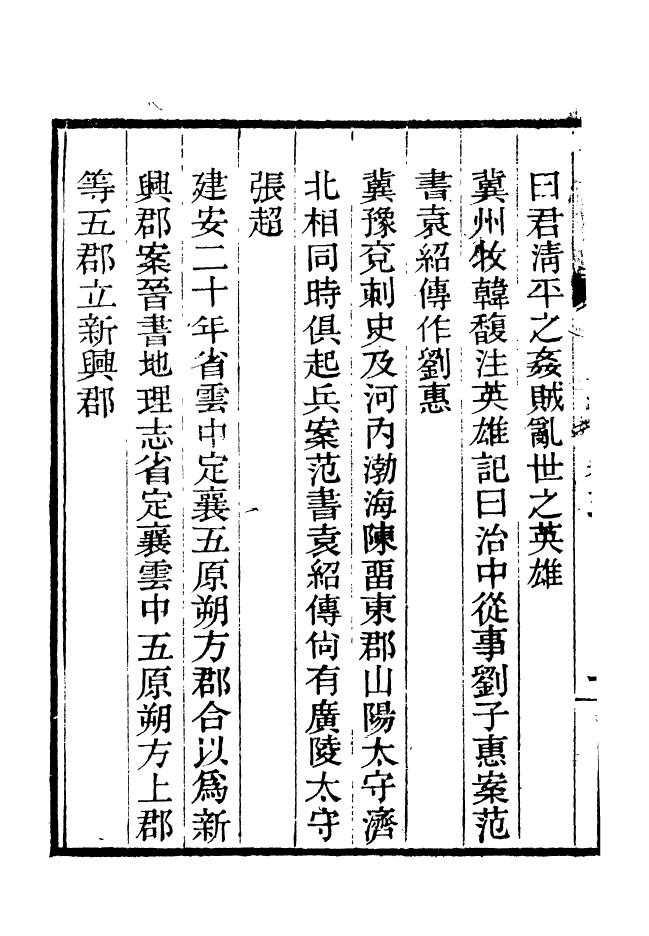 曰君淸平之姦賊亂世之英雄
冀州牧韓馥注英雄記曰治中從事劉子惠案范
書袁紹傳作劉惠
冀豫兗刺史及河內渤海陳畱東郡山陽太守濟
北相同時俱起兵案范書袁紹傳尙有廣陵太守
張超
建安二十年省雲中定襄五原朔方郡合以爲新
興郡案晉書地理志省定襄雲中五原朔方上郡
等五郡立新興郡